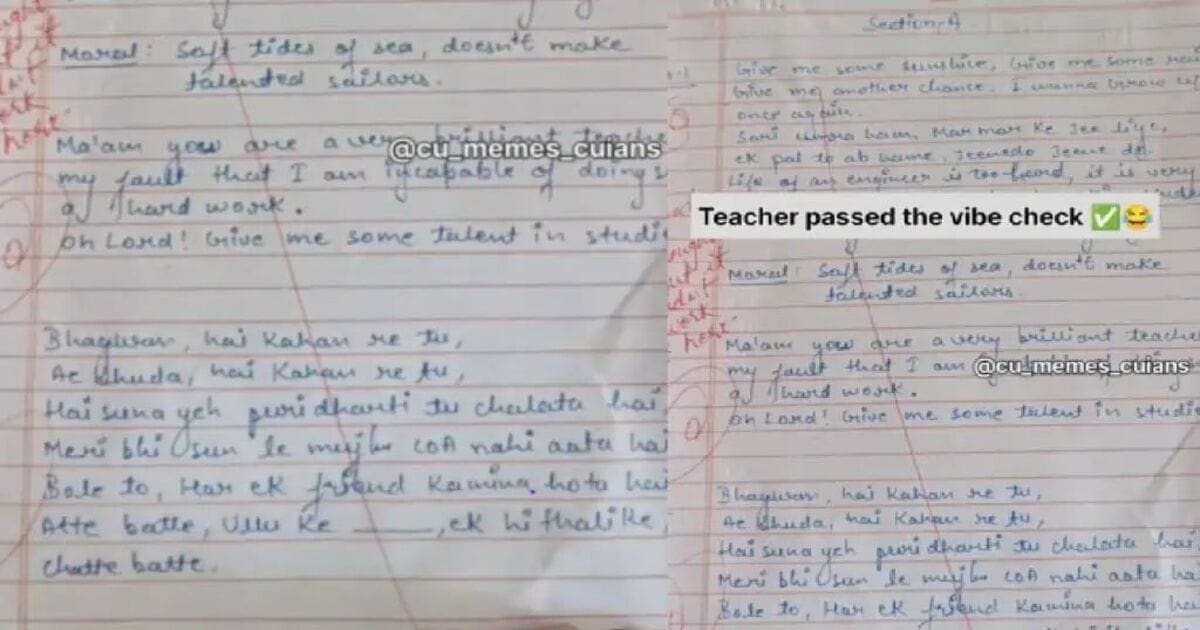 Moral: Soft tides of sea, doesn't make
talented sailors.
Ma'am you are a very brilliant teache
my fault that I am incapable of doing s
hard work.
Oh Lord! Give me some talent in studi
Bhagwan, hai Kahan re tu,
Ae Khuda, hai Kahan re tu,
Hai suna yeh puri dharti tu chalata hai,
Meri bhi sun le mujhe COA nahi aata hai
Bole to, Har ek friend Kamina hota hai
Atte batte, Ullu ke ____, ek hi thali ke
chatte batte.
@cu_memes_cuians
Section-A
Give me some sunshine, Give me some rai
Give me another chance. I wanna grow up
once again.
Sari umra ham, Mar mar ke jee liye,
ek pal to ab hame, Jeenedo Jeene do.
Life of an engineer is too hard, it is very
Teacher passed the vibe check ✅😂
Moral: Soft tides of sea, doesn't make
talented sailors.
Ma'am you are a very brilliant teache
my fault that I am
@cu_memes_cuians
hard work.
Oh Lord! Give me some talent in studi
Bhagwan, hai Kahan re tu,
Ae Khuda, hai Kahan re tu,
Hai suna yeh puri dharti tu chalata hai,
Meri bhi sun le mujhe COA nahi aata hai
Bole to, Har ek friend Kamina hota hai